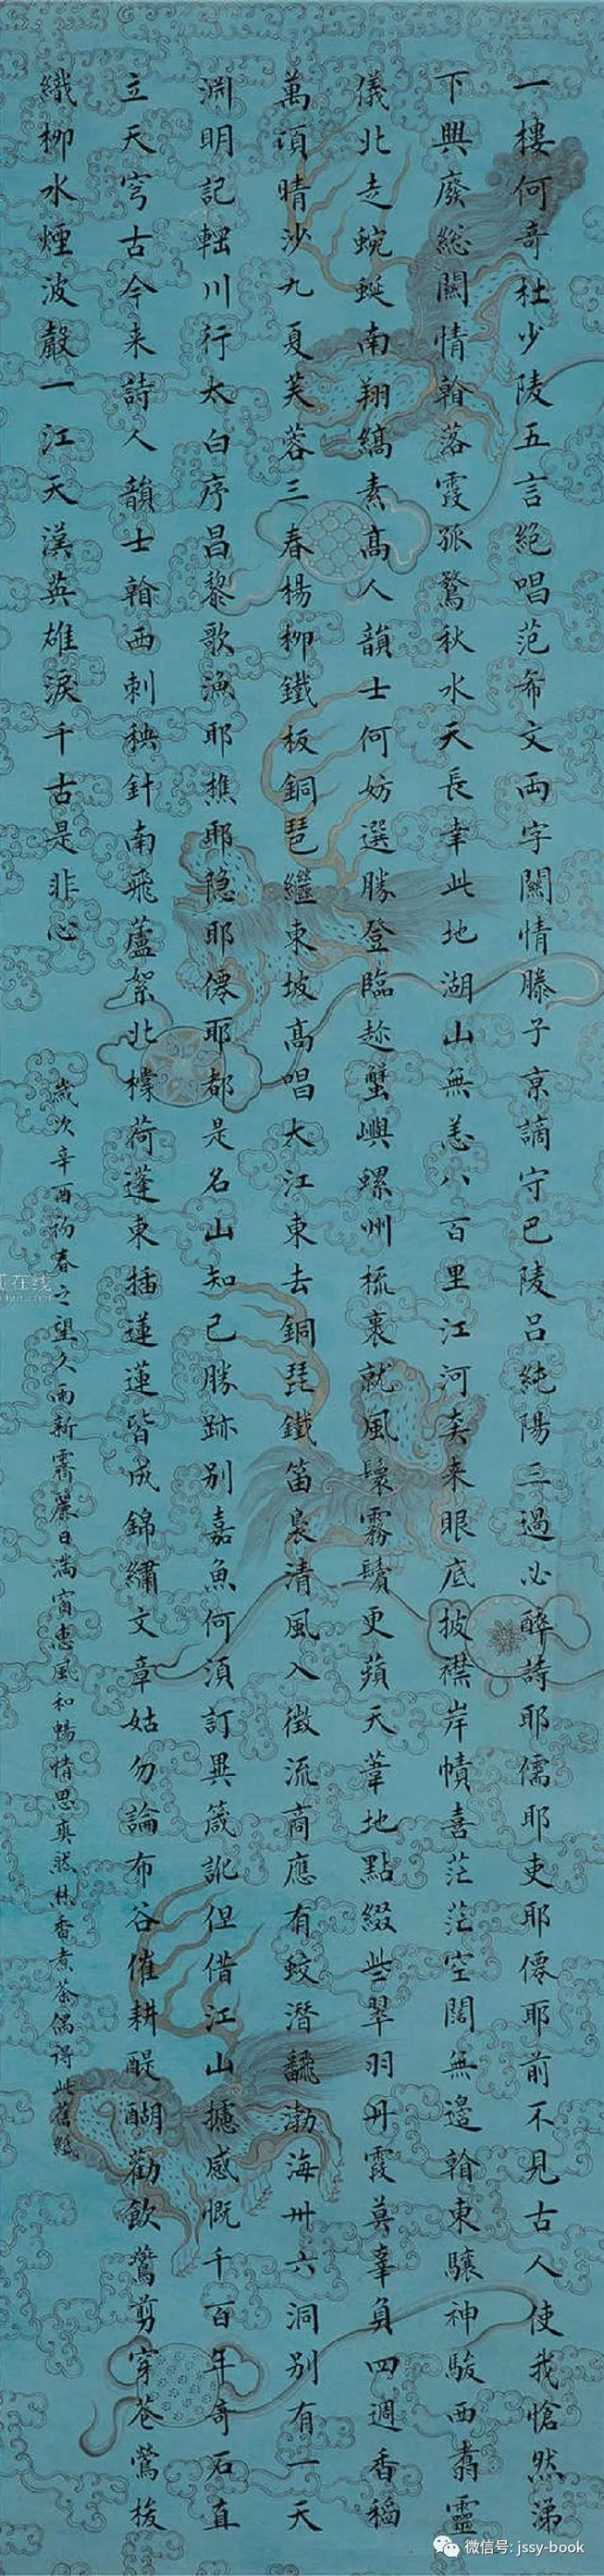 一樓何奇杜少陵五言絕唱范希文兩字關情滕子京謫守巴陵呂純陽三過必醉詩耶儒耶吏耶僊耶前不見古人使我愴然涕
下興廢総關情翰落霞孤鶩秋水天長幸此地湖山無恙八百里江河奔来眼底披襟岸幘喜茫茫空闊無邊翰東驤神駿西翥靈
儀北走蜿蜒南翔縞素高人韻士何妨選勝登臨趁蟹嶼螺州梳裹就風鬟霧鬢更蘋天葦地點綴些翠羽丹霞莫辜負四週香稻
萬頃晴沙九夏芙蓉三春楊柳鐵板銅琶繼東坡高唱大江東去銅琵鐵笛裊清風入徵流商應有蛟潛飜渤海卅六洞別有一天
淵明記輞川行太白序昌黎歌漁耶樵耶隐耶僊耶都是名山知己勝跡别嘉魚何須訂異箴訛但借江山攄感慨千百年奇石直
立天穹古今来詩人韻士翰西刺秧針南飛蘆絮北檬荷蓬東插蓮蓮皆成錦繡文章姑勿論布谷催耕醍醐勸飲鶯剪穿苍鶯梭
織柳水煙波聲一江天漢英雄淚千古是非心
歲次辛酉初春之望久雨新霽麗日满窗惠風和暢情思爽然焚香煮茶偶得此舊紙
正在线
微信号: jssy-book